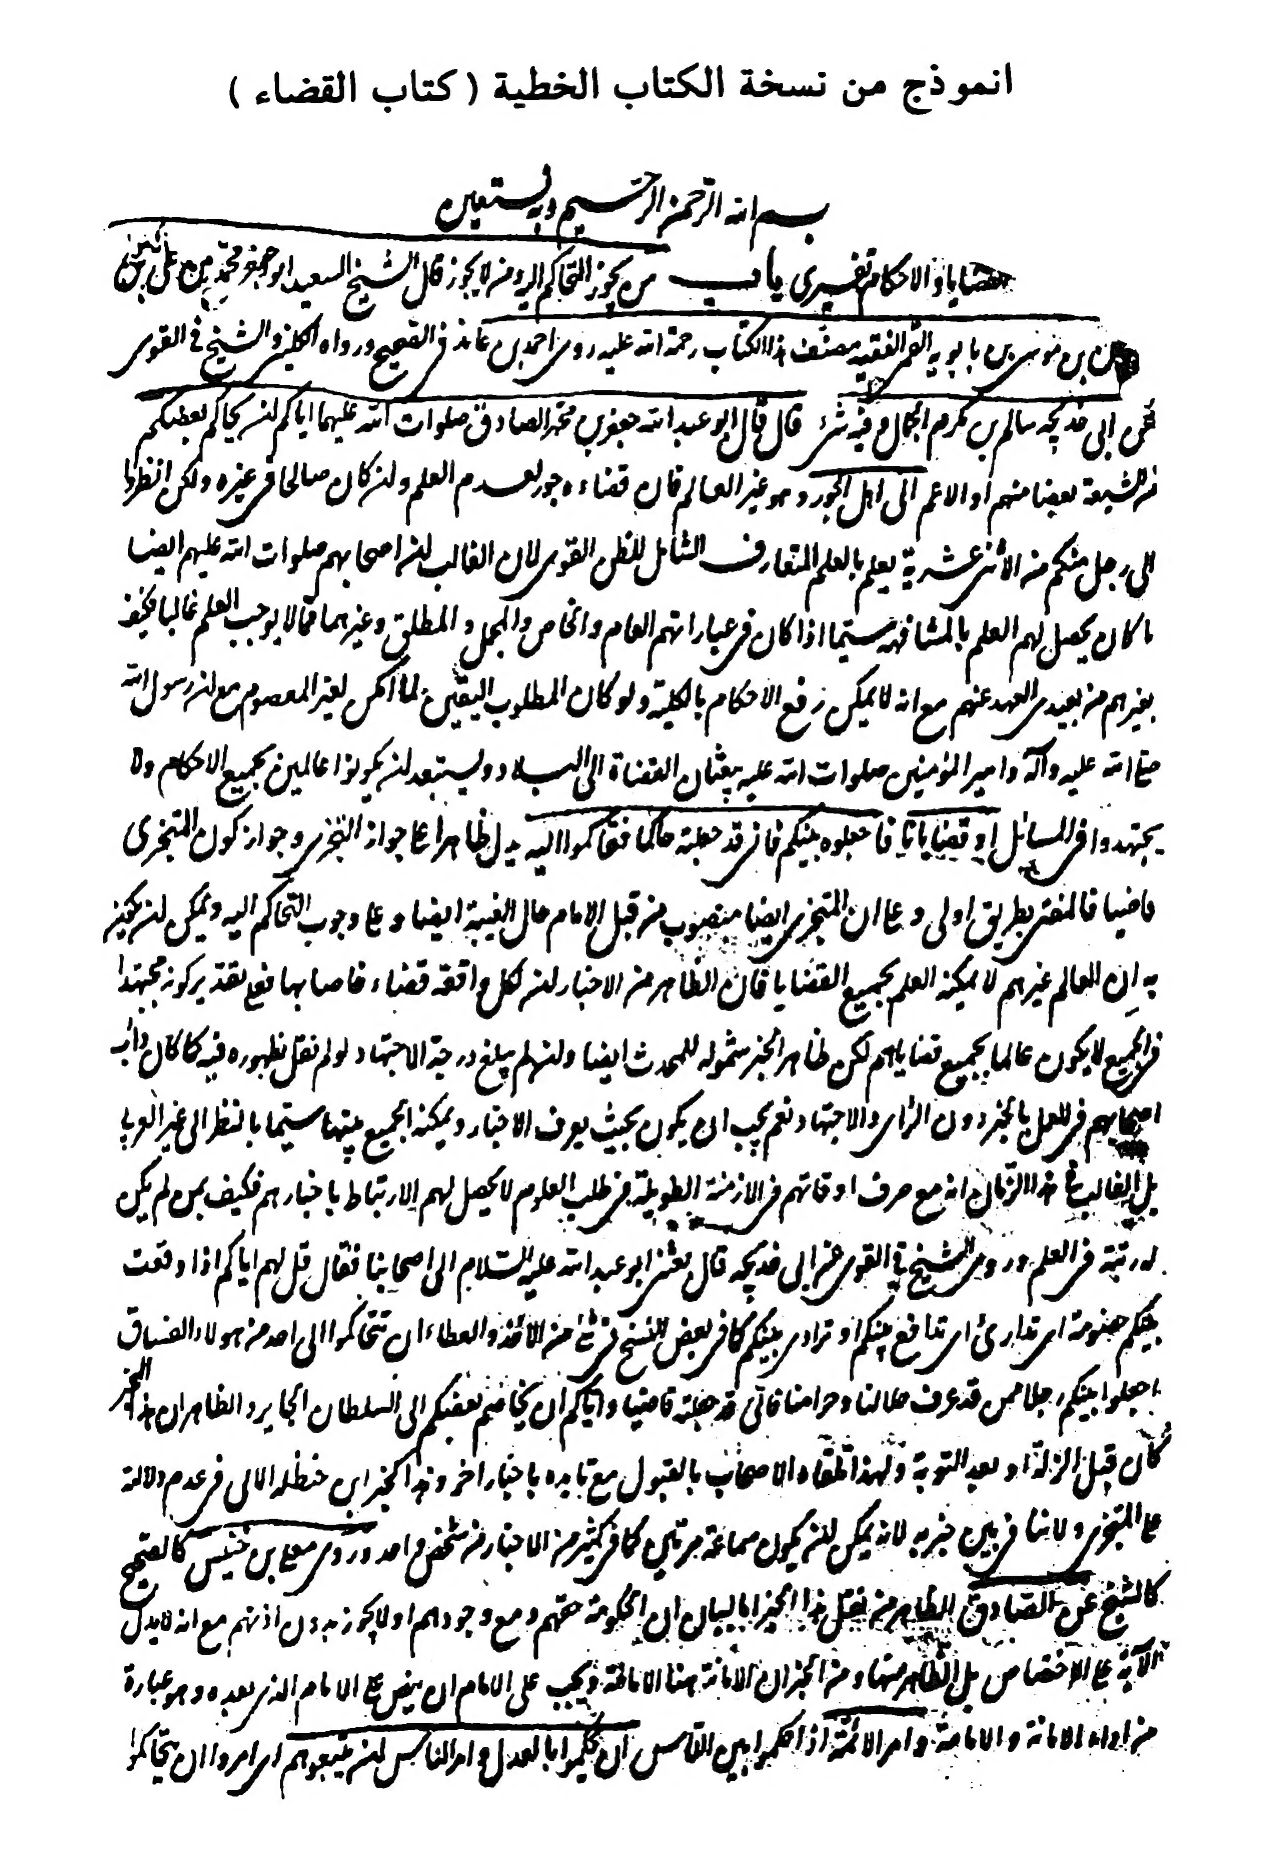 انموذج من نسخة الكتاب الخطية ( كتاب القضاء )
بسم الله الرّحمن الرّحيم وبه نستعين
القضايا والاحكام باب من يجوز التحاكم اليه ومن لا يجوز قال الشيخ السعيد ابو جعفر محمّد بن علي بن
بن موسى بن بابويه القمى الفقيه مصنّف هذا الكتاب رحمة الله عليه روى احمد بن عائذ فى الصحيح ورواه الكلينى والشيخ فى القوى
عن ابى خديجه سالم بن مكرم الجمال وفيه شئ قال قال ابو عبد الله جعفر بن محمد الصادق صلوات الله عليهما اياكم ان يحاكم بعضكم
من الشيعة بعضا منهم او الاعم الى اهل الجور وهو غير العالم فان قضاءه جور لعدم العلم وان كان صالحا فى غيره ولكن انظروا
الى رجل منكم من الاثنى عشرية يعلم بالعلم المتعارف الشامل للظن القوى لان الغالب ان اصحابهم صلوات الله عليهم ايضا
ما كان يحصل لهم العلم بالمشافهه سيّما اذا كان فى عباراتهم العام والخاص والمجمل والمطلق وغيرهما مما لا يوجب العلم غالبا فكيف
بغيرهم من بعيدى العهد عنهم مع انه لا يمكن رفع الاحكام بالكلية ولو كان المطلوب اليقين لما امكن لغير المعصوم مع ان رسول الله
صلى الله عليه وآله وامير المؤمنين صلوات الله عليه يبعثان القضاة الى البلاد ويستبعد ان يكونوا عالمين بجميع الاحكام ولا
يجتهدوا فى المسائل او قضايانا فاجعلوه بينكم فانى قد جعلته حاكما فتحاكموا اليه يدل ظاهرا على جواز التجزى وجواز كون المتجزى
قاضيا فالمفتى بطريق اولى وعلى ان المتجزى ايضا منصوب من قبل الامام حال الغيبة ايضا وعلى وجوب التحاكم اليه ويمكن ان يكون
به ان العالم غيرهم لا يمكنه العلم بجميع القضايا فان الظاهر من الاخبار ان لكل واقعة قضاء خاصا بها فعلى تقدير كونه مجتهدا
فى الجميع لا يكون عالما بجميع قضاياهم لكن ظاهر الخبر شموله للمحدث ايضا وان لم يبلغ درجة الاجتهاد لو لم نقل بظهوره فيه كما كان دأب
اصحابهم فى العمل بالخبر دون الرأى والاجتهاد نعم يجب ان يكون بحيث يعرف الاخبار ويمكنه الجميع بينها سيّما بالنظر الى غير العرب
بل الغالب فى هذا الزمان انه مع صرف اوقاتهم فى الازمنة الطويلة فى طلب العلوم لا يحصل لهم الارتباط باخبارهم فكيف بمن لم يكن
له رتبة فى العلم وروى الشيخ فى القوى عن ابى خديجه قال بعثنى ابو عبد الله عليه السلام الى اصحابنا فقال قل لهم اياكم اذا وقعت
بينكم خصومة او تدارئ اى تدافع بينكم او ترادى بينكم كما فى بعض النسخ فى شئ من الاخذ والعطاء ان تتحاكموا الى احد من هؤلاء الفساق
اجعلوا بينكم رجلا ممن قد عرف حلالنا وحرامنا فانّى قد جعلته قاضيا واياكم ان يخاصم بعضكم الى السلطان الجاير والظاهر ان هذا الخبر
كان قبل الزلة او بعد التوبة ولهذا تلقاه الاصحاب بالقبول مع تايده باخبار اخر وهذا الخبر ابن حنظله الاتى فى عدم دلالة
على التجزى ولا تنافى بين خبريه لانه يمكن ان يكون سماعه مرتين كما فى كثير من الاخبار من شخص واحد وروى معلى بن خنيس كالصحيح
كالشيخ عن الصادق الظاهر من نقل هذا الخبر البيان ان الحكومة حقهم ومع وجودهم او لا يجوز بدون اذنهم مع انه لا يدل
الآية على الاختصاص بل الظاهر منها ومن الخبر ان الامانة هنا الامامة ويجب على الامام ان ينص على الامام الذى بعده وهو عبارة
من اداء الامانة والامامة وامر الائمّة اذا حكموا بين النّاس ان يحكموا بالعدل وامر الناس ان يتبعوهم اى امروا ان يتحاكموا